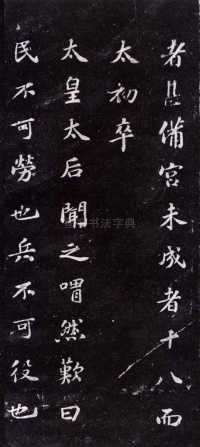 者且備宮未成者十八而
太初卒
太皇太后聞之喟然歎曰
民不可勞也兵不可役也
书法字典